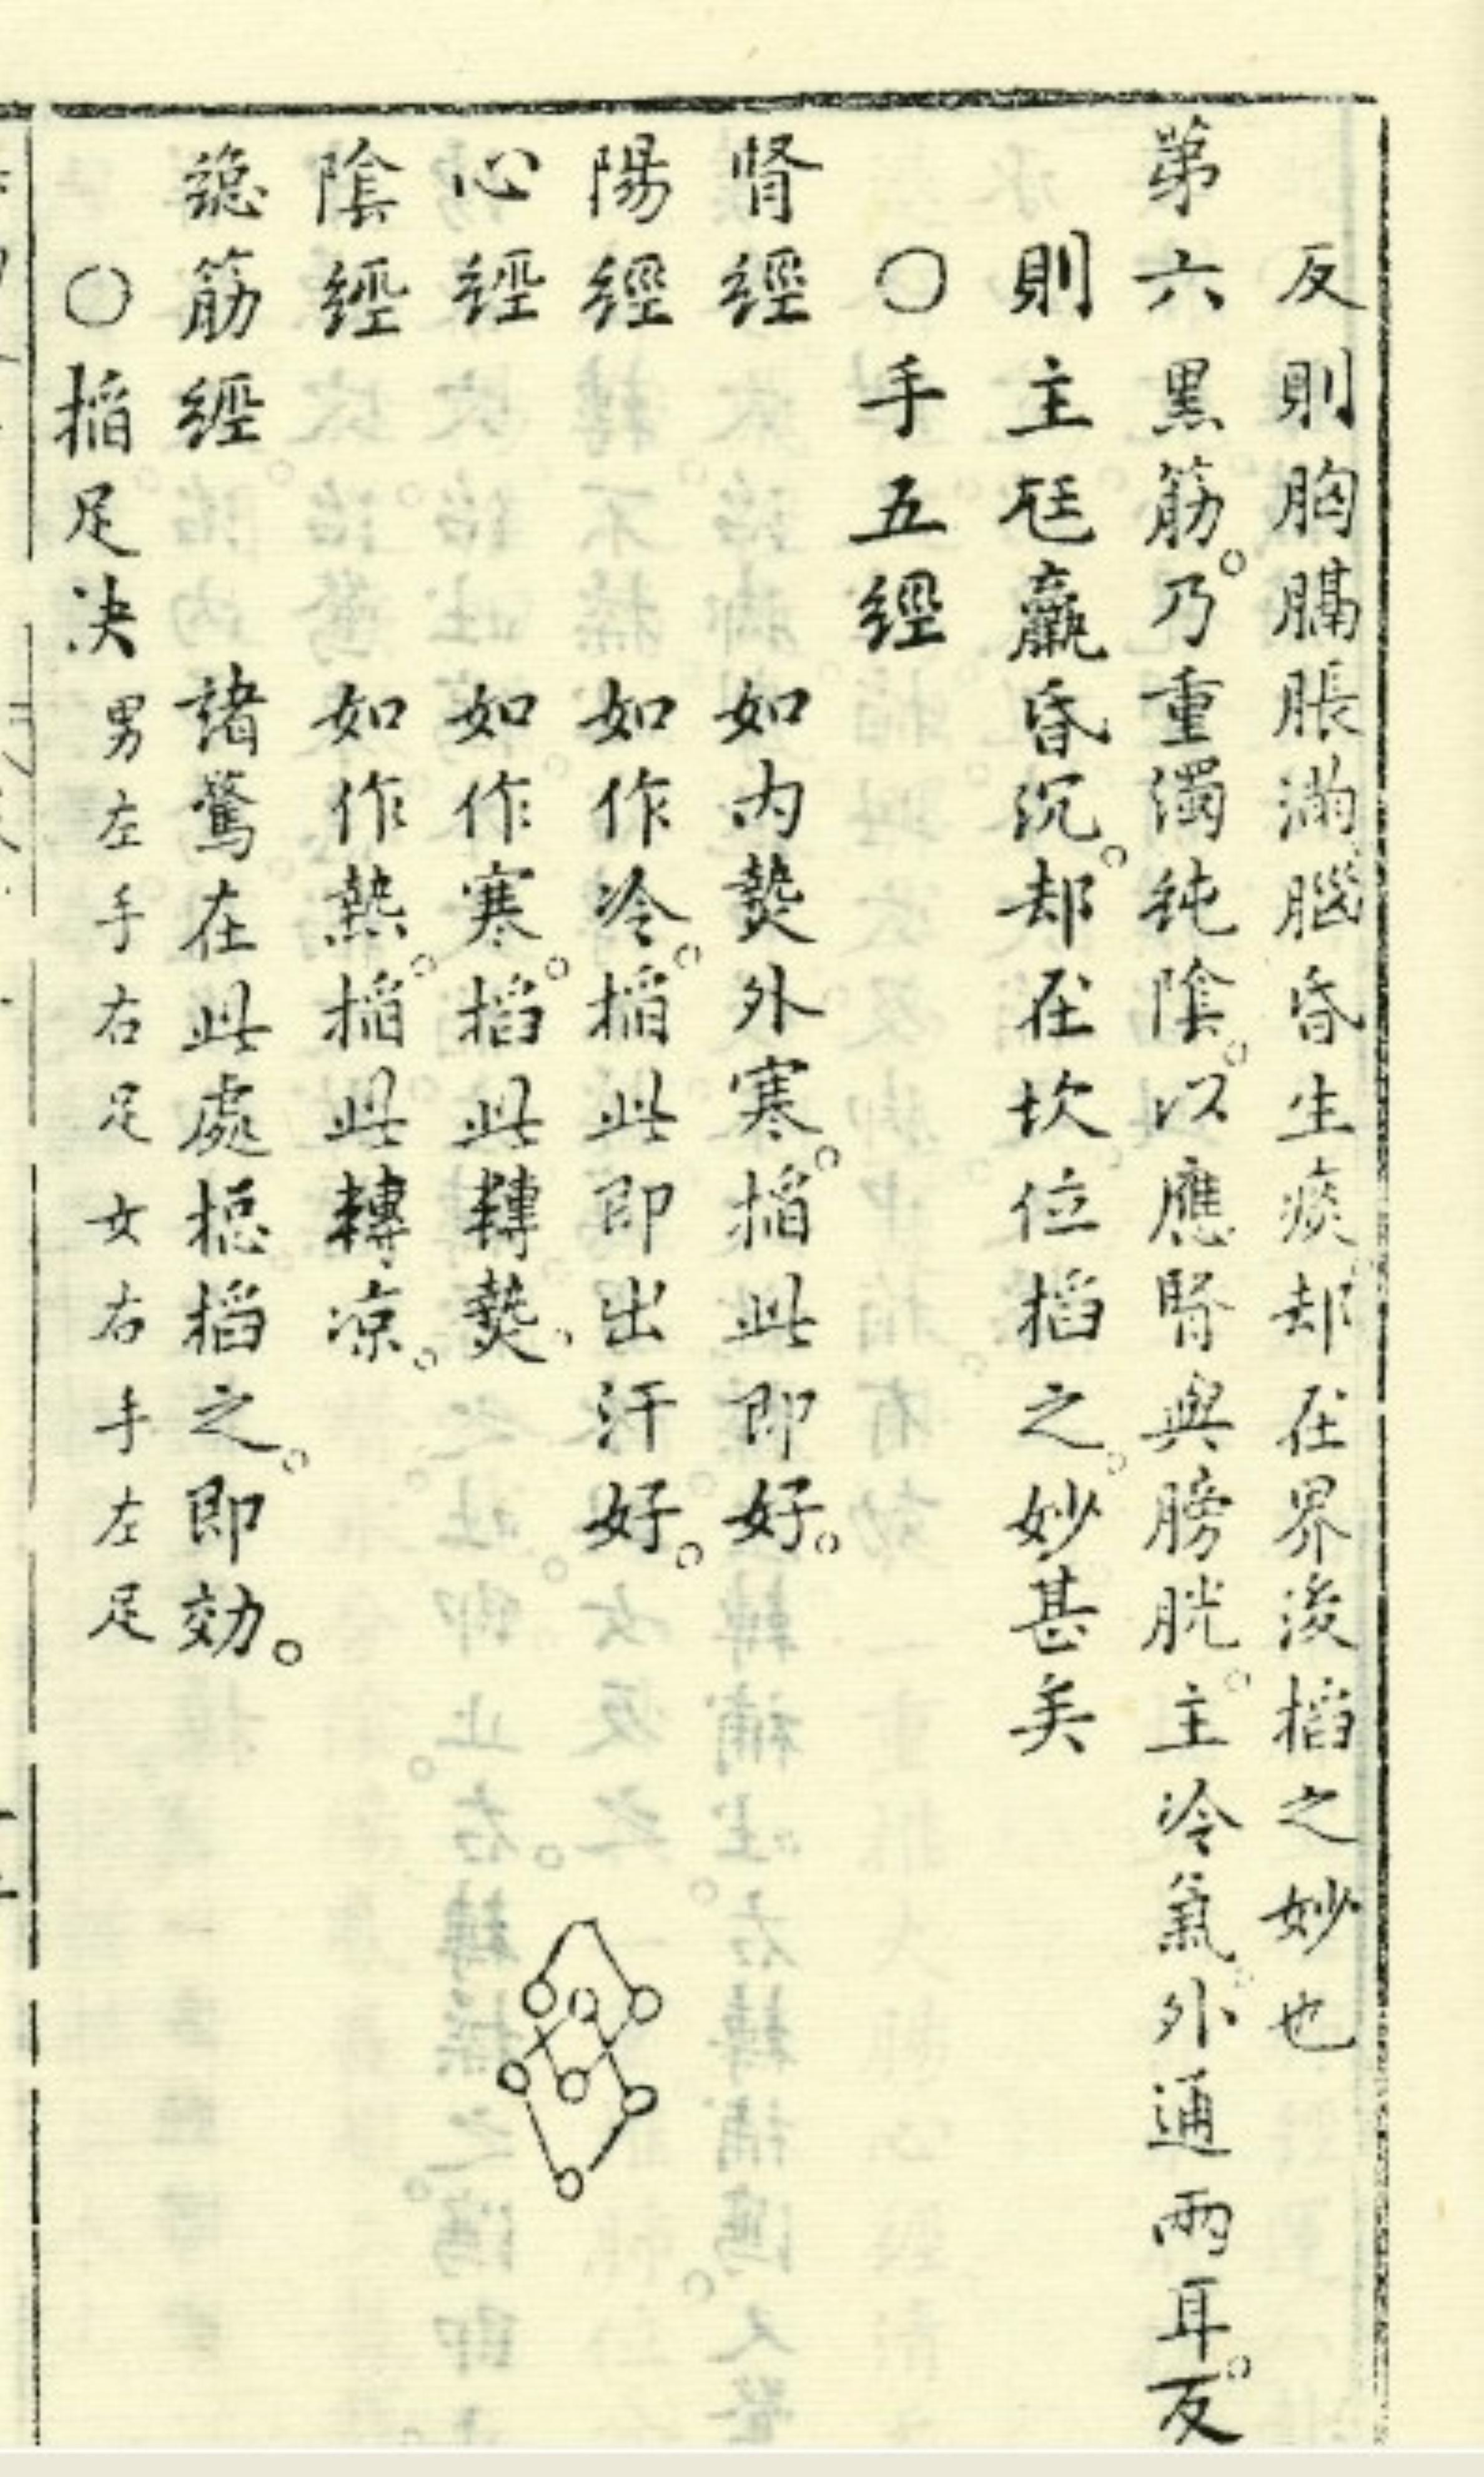 反則胸膈脹滿腦昏生痰却在界後掐之妙也
第六黑筋。乃重濁純陰。以應腎與膀胱。主冷氣。外通兩耳。反
則主尪羸昏沉。却在坎位掐之。妙甚矣
○手五經
腎經 如內𤍠外寒。掐此即好。
陽經 如作冷。掐此即出汗好。
心經 如作寒。掐此轉𤍠。
陰經 如作熱。掐此轉凉。
總筋經 諸驚在此處揔掐之。即効。
○掐足决 男左手右足 女右手左足